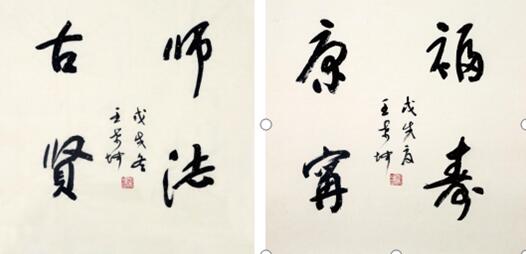 师法
古贤
戊戌冬
王 坤
福寿
康寧
戊戌夏
王 坤